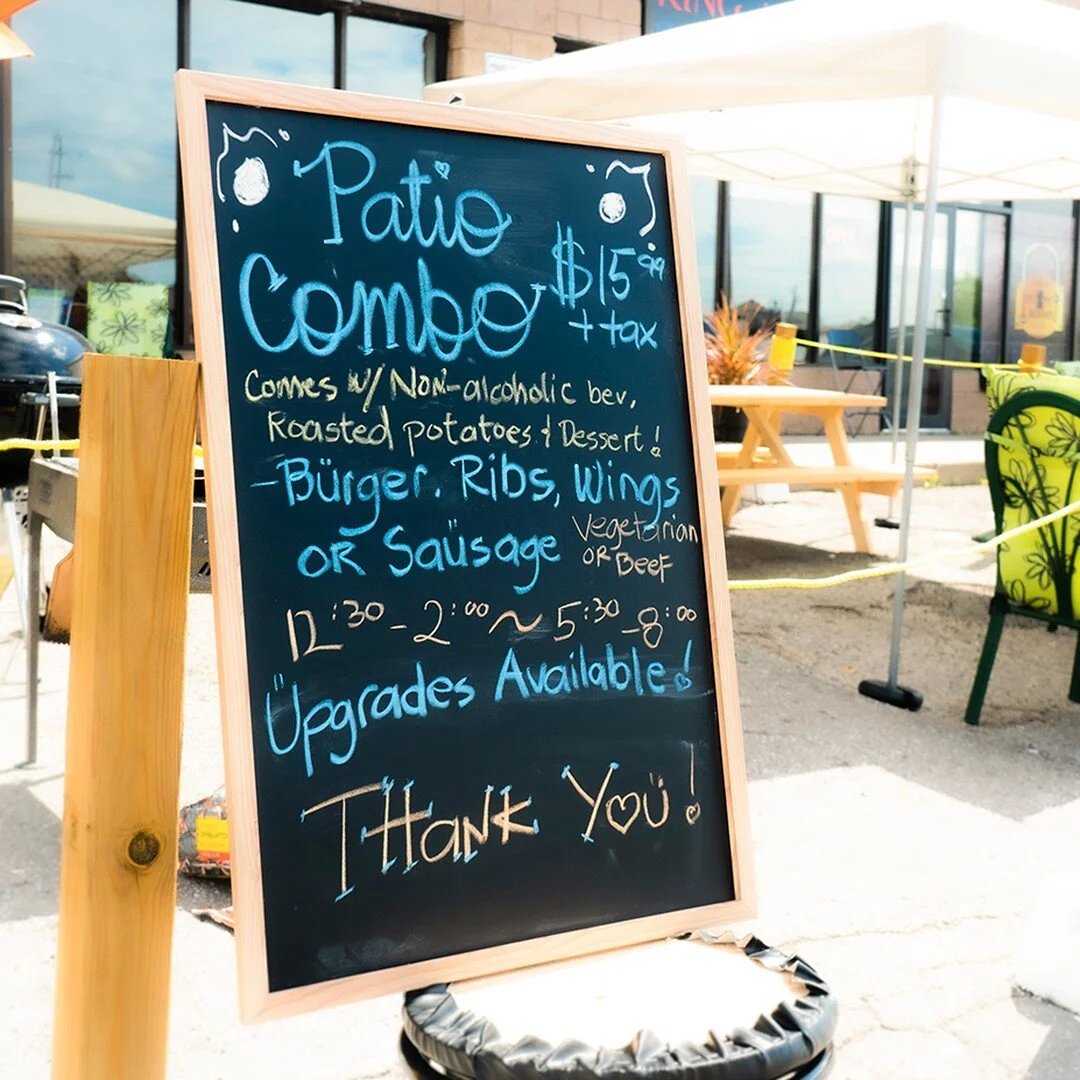 Patio
Combo $15.99
+ tax
Comes w/ Non-alcoholic bev,
Roasted potatoes & Dessert!
- Bürger. Ribs, Wings
OR Saüsage Vegetarian
OR Beef
12:30 - 2:00 ~ 5:30 - 8:00
Üpgrades Available!
THank YoÜ!